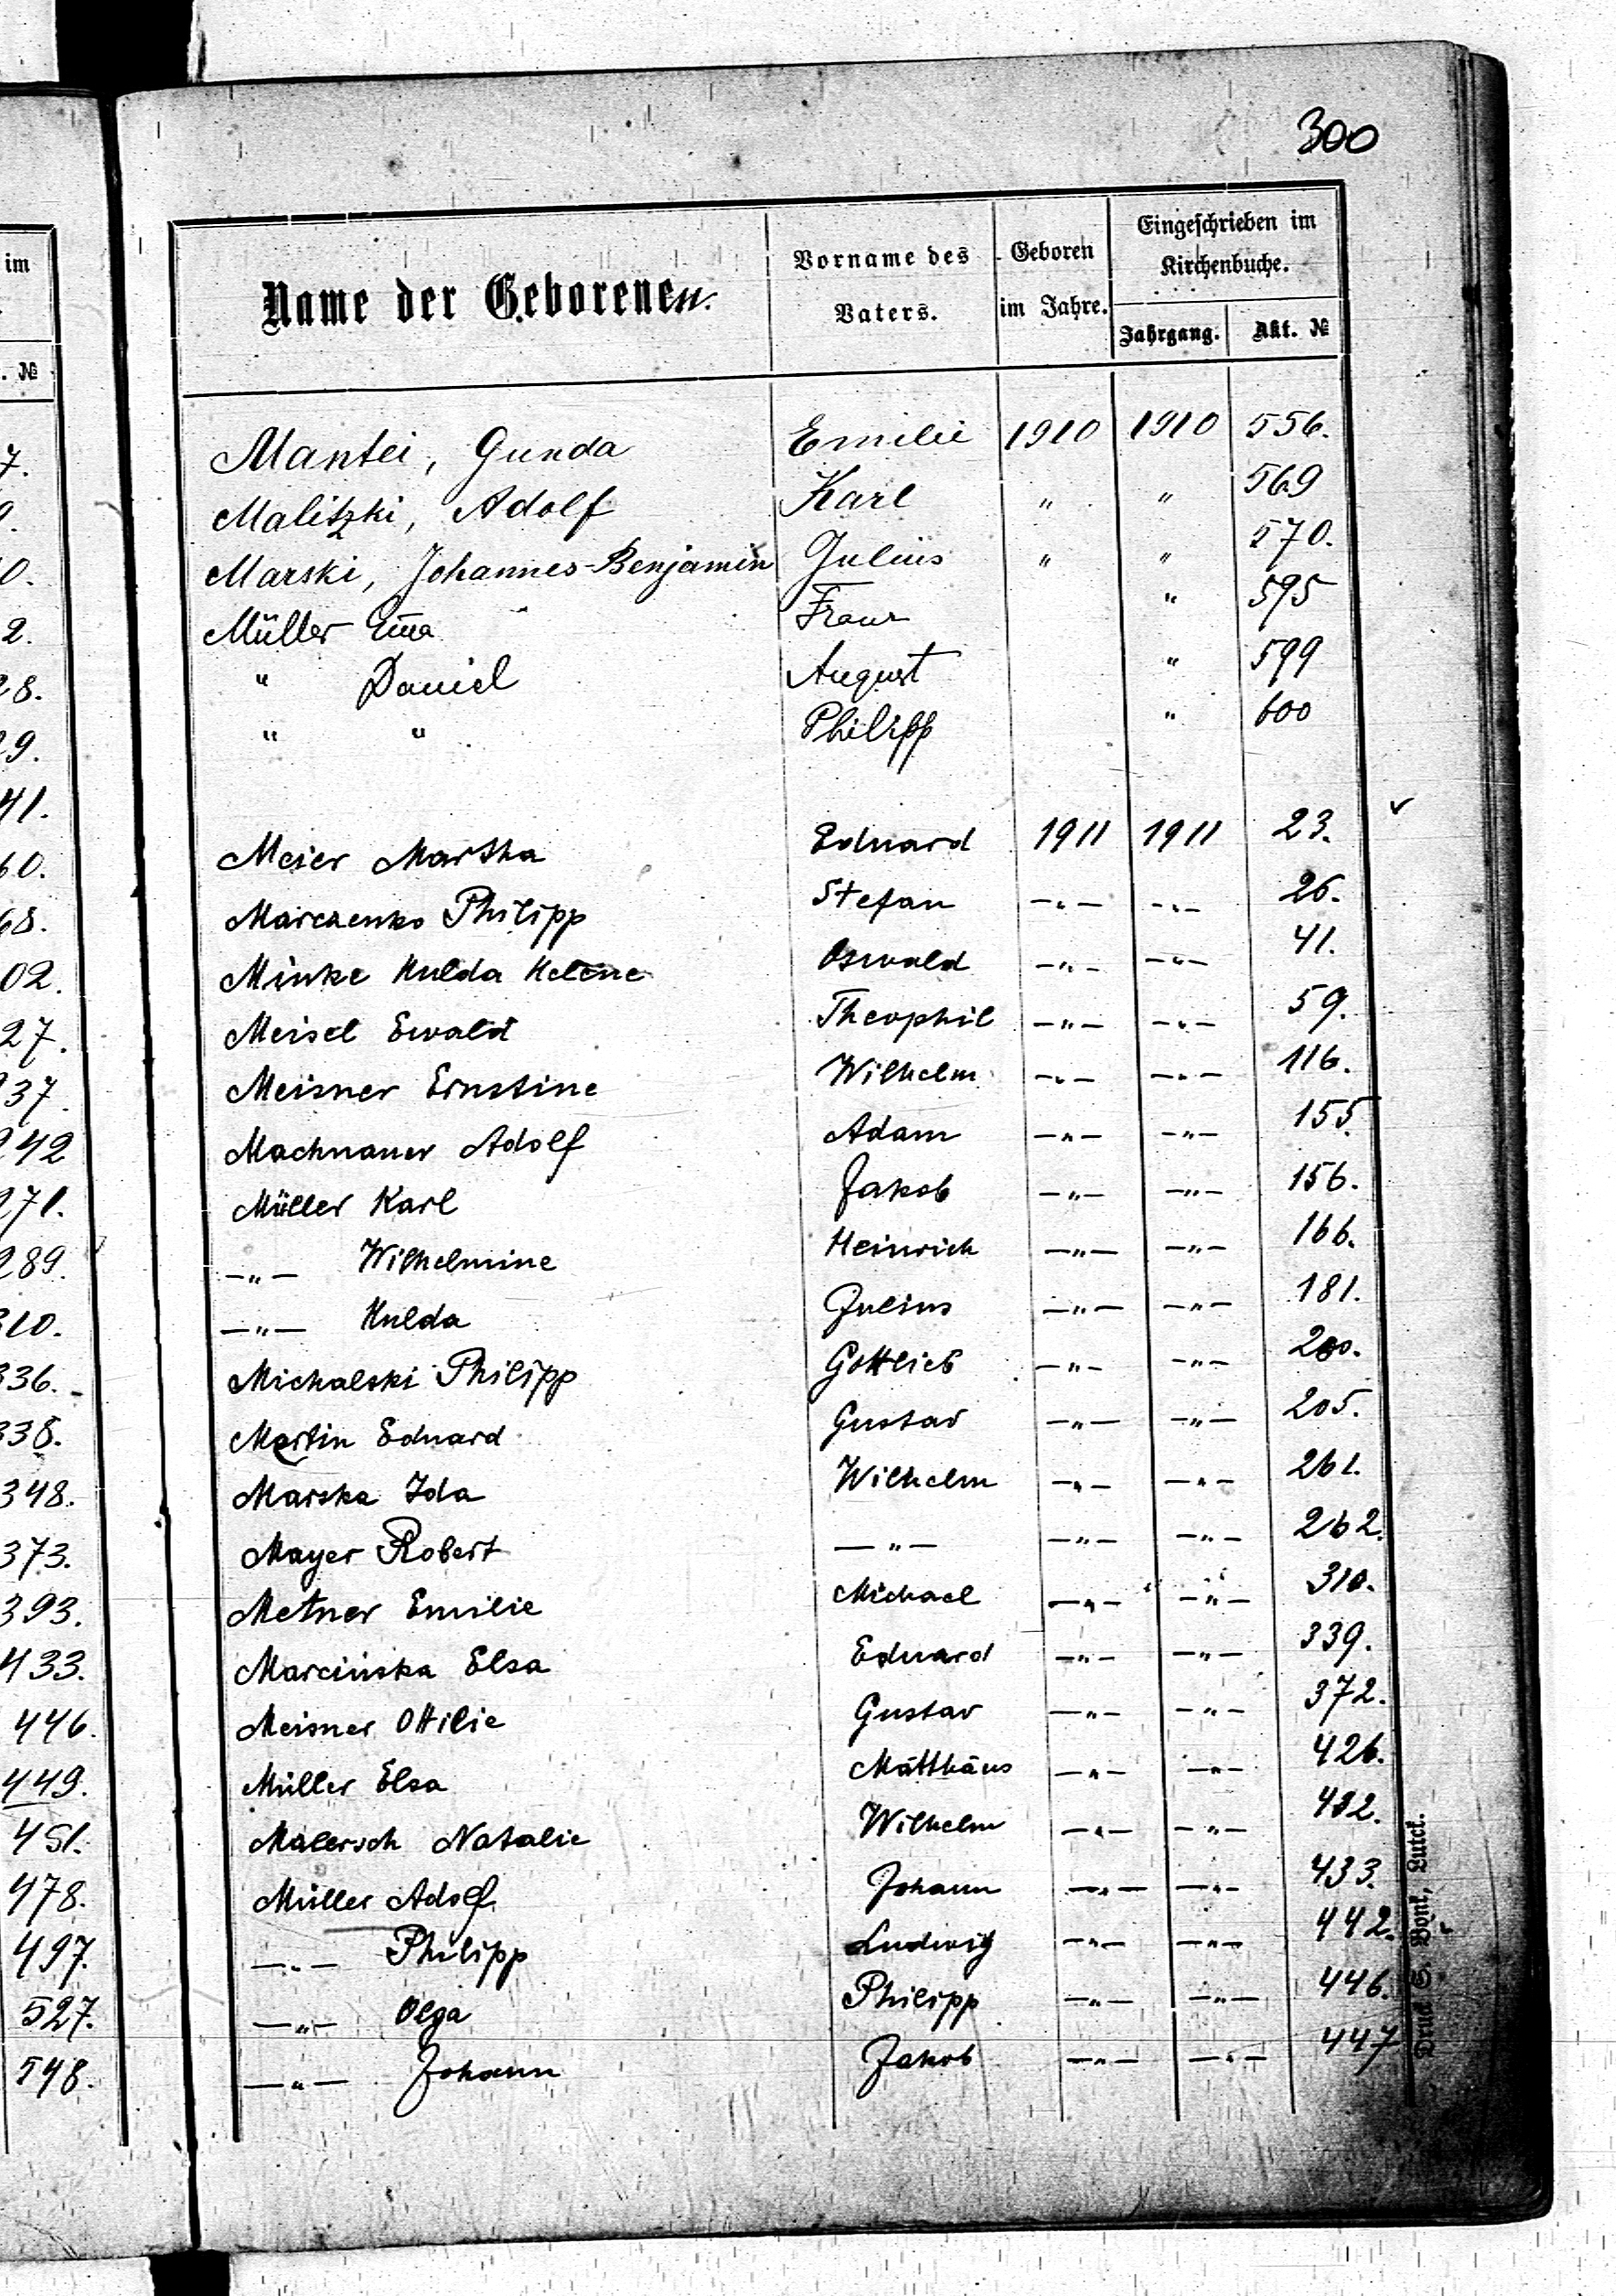 300
im
. №
7.
9.
0.
2.
28.
29.
41.
60.
68.
02.
27.
237.
242
271.
289.
310.
336.
338.
348.
373.
393.
433.
446.
449.
451.
478.
497.
527.
548.
Name der Geborenen. Vorname des Vaters. Geboren im Jahre. Eingeschrieben im Kirchenbuche.
Jahrgang. Akt. №
Mantei, Gunda Emilie 1910 1910 556.
Malitzki, Adolf Karl " " 569
Marski, Johannes-Benjamin Julius " " 570.
Müller Em̄a Franz " 595
" Daniel August " 599
" " Philipp " 600
Meier Martha Eduard 1911 1911 23.
Marczenko Philipp Stefan —"— —"— 26.
Minke Hulda Helene Oswald —"— —"— 41.
Meisel Ewald Theophil —"— —"— 59.
Meisner Ernstine Wilhelm —"— —"— 116.
Machnauer Adolf Adam —"— —"— 155.
Müller Karl Jakob —"— —"— 156.
—"— Wilhelmine Heinrich —"— —"— 166.
—"— Hulda Julius —"— —"— 181.
Michalski Philipp Gottlieb —"— —"— 200.
Martin Eduard Gustav —"— —"— 205.
Marska Ida Wilhelm —"— —"— 261.
Mayer Robert —"— —"— —"— 262.
Metner Emilie Michael —"— —"— 310.
Marcinska Elsa Eduard —"— —"— 339.
Meisner Ottilie Gustav —"— —"— 372.
Müller Elsa Matthäus —"— —"— 426.
Malersch Natalie Wilhelm —"— —"— 432.
Müller Adolf Johann —"— —"— 433.
—"— Philipp Ludwig —"— —"— 442.
—"— Olga Philipp —"— —"— 446.
—"— Johann Jakob —"— —"— 447
Druck S. Bonk, Lutck.